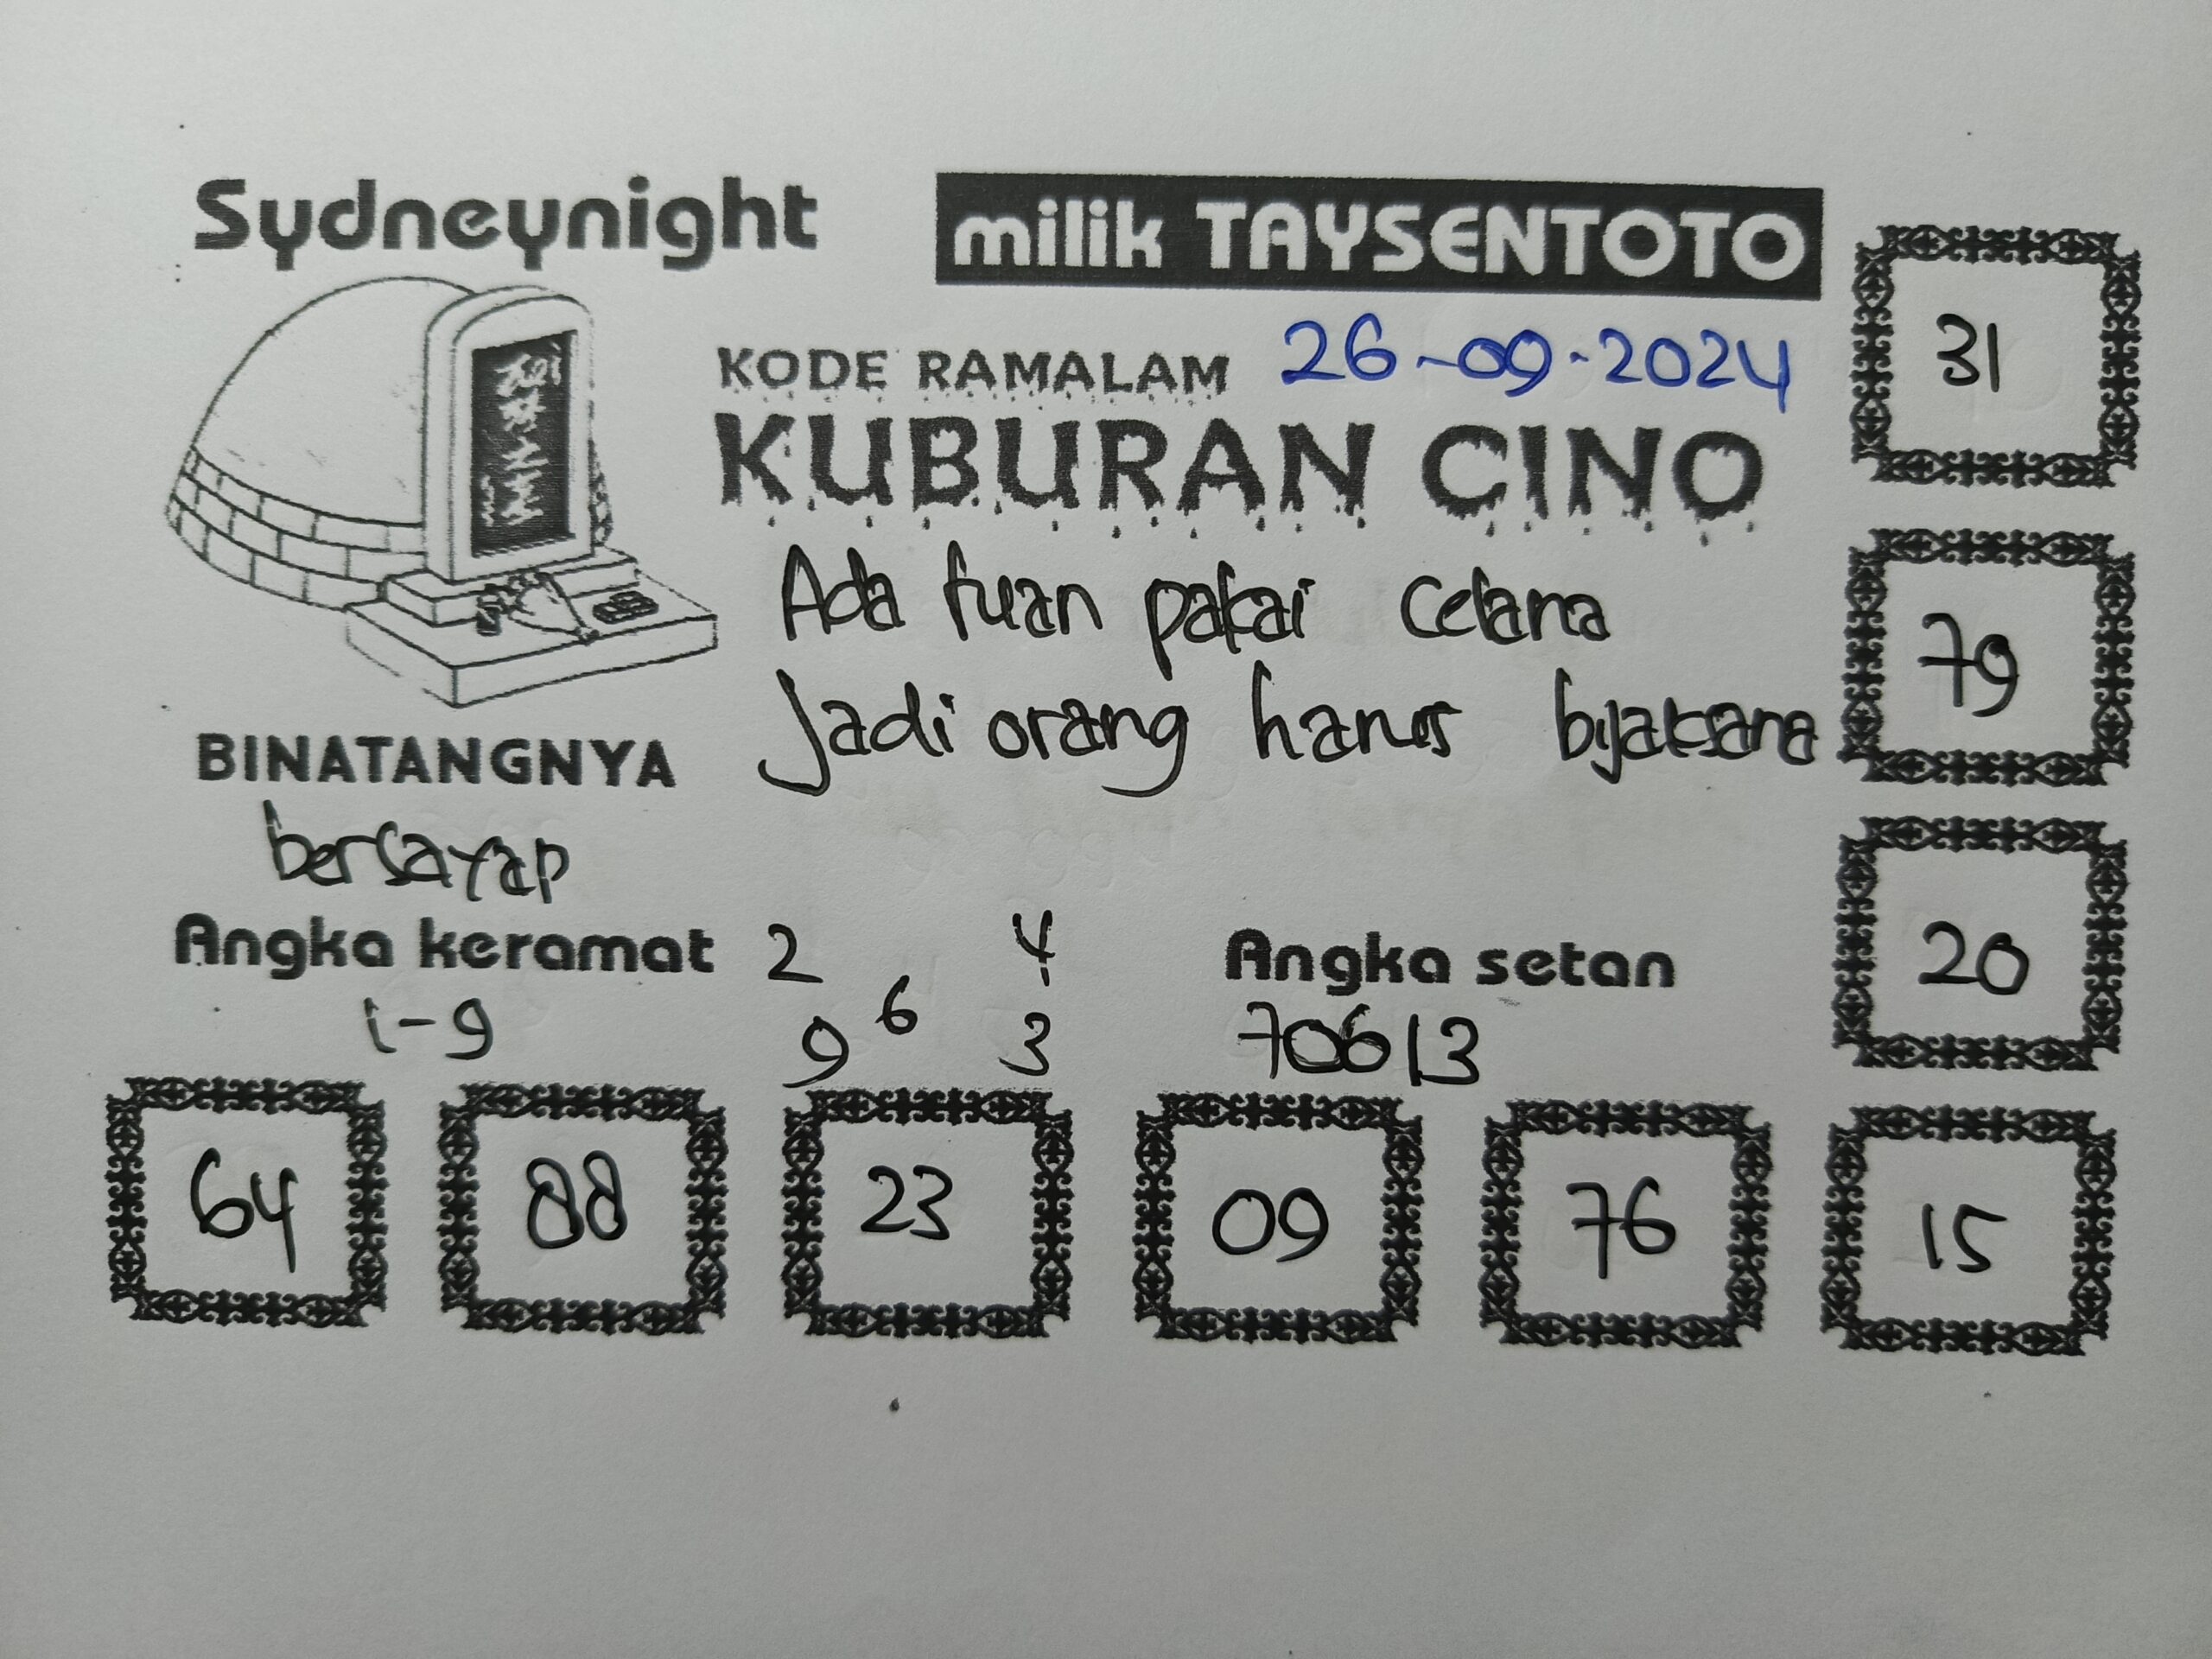 Sydneynight
milik TAYSENTOTO
KODE RAMALAM 26-09-2024
KUBURAN CINO
Ada tuan pakai celana
Jadi orang harus bijaksana
BINATANGNYA
bersayap
Angka keramat
1-9
2 4
6
9 3
Angka setan
70613
31
79
20
64 88 23 09 76 15